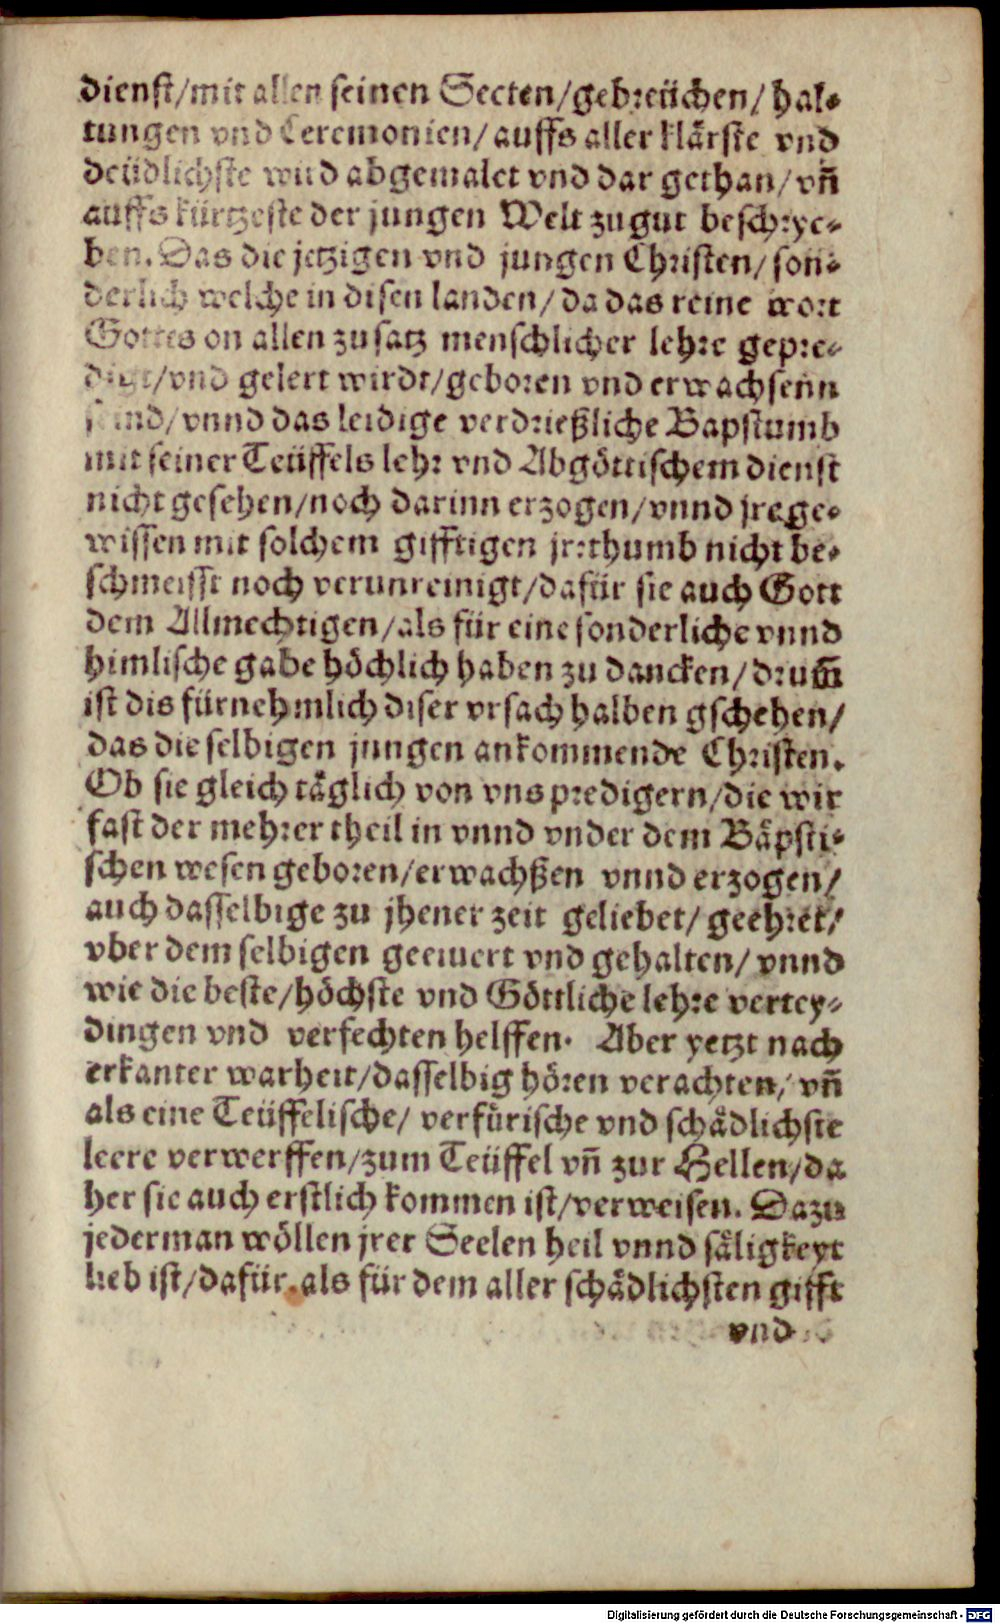 dienst/mit allen seinen Secten/gebreüchen/hal⸗
tungen vnd Ceremonien/auffs aller klärste vnd
deüdlichste wird abgemalet vnd dar gethan/vñ
auffs kürtzeste der jungen Welt zugut beschrye⸗
ben. Das die jetzigen vnd jungen Christen/son⸗
derlich welche in disen landen/da das reine wort
Gottes on allen zusatz menschlicher lehre gepre⸗
digt/vnd gelert wirdt/geboren vnd erwachsenn
seind/vnnd das leidige verdrießliche Bapstumb
mit seiner Teüffels lehr vnd Abgöttischem dienst
nicht gesehen/noch darinn erzogen/vnnd jre ge⸗
wissen mit solchem gifftigen jrrthumb nicht be⸗
schmeisst noch verunreinigt/dafür sie auch Gott
dem Allmechtigen/als für eine sonderliche vnnd
himlische gabe höchlich haben zu dancken/drum̃
ist dis fürnehmlich diser vrsach halben gschehen/
das die selbigen jungen ankommende Christen.
Ob sie gleich täglich von vns predigern/die wir
fast der mehrer theil in vnnd vnder dem Bäpsti⸗
schen wesen geboren/erwachßen vnnd erzogen/
auch dasselbige zu jhener zeit geliebet/geehret/
vber dem selbigen geeiuert vnd gehalten/vnnd
wie die beste/höchste vnd Göttliche lehre vertey⸗
dingen vnd verfechten helffen. Aber yetzt nach
erkanter warheit/dasselbig hören verachten/vñ
als eine Teüffelische/verfürische vnd schädlichste
leere verwerffen/zum Teüffel vñ zur Hellen/da
her sie auch erstlich kommen ist/verweisen. Dazu
jederman wöllen jrer Seelen heil vnnd säligkeyt
lieb ist/dafür als für dem aller schädlichsten gifft
vnd
Digitalisierung gefördert durch die Deutsche Forschungsgemeinschaft - DFG